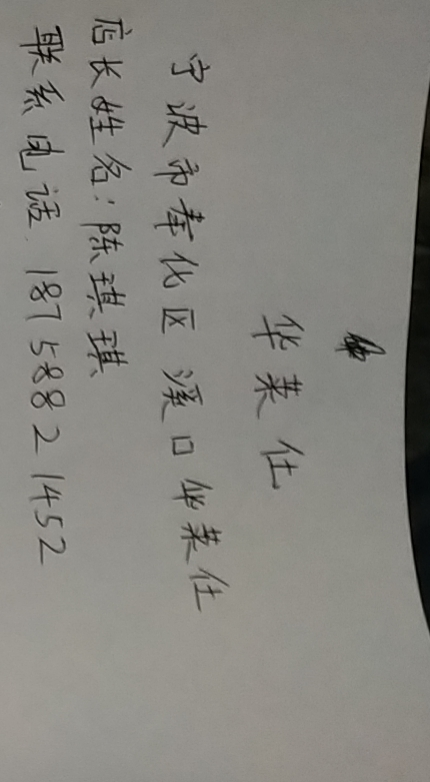 华莱仕
宁波市奉化区溪口华莱仕
店长姓名:陈琪琪
联系电话 18758821452